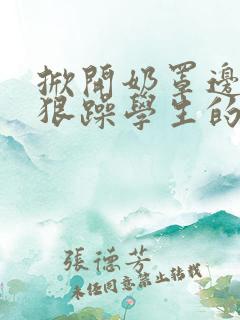 掀開奶罩邊
狠躁學生的
張德芳
未经同意禁止转载